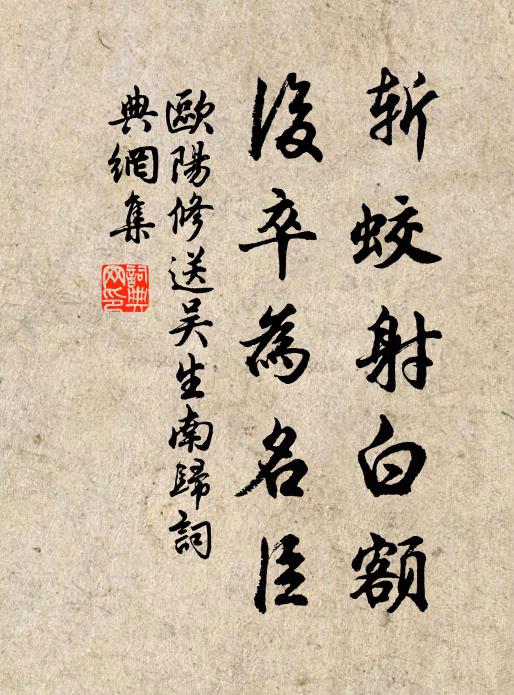 斬蛟射白額
後卒為名臣
歐陽修送吴生南歸詞
典網集
詞典網印